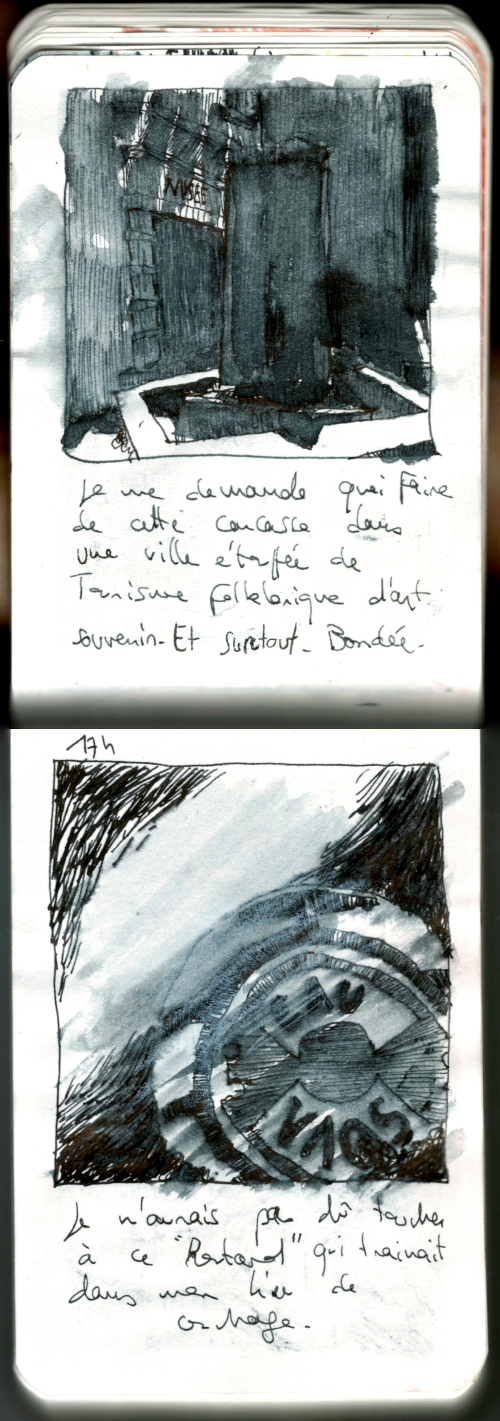 MUSÉE
Je me demande quoi faire
de cette carcasse dans
une ville étouffée de
Tourisme folklorique d'art
souvenir. Et surtout. Bondée.
17h
Je n'aurais pas dû toucher
à ce "Rostand" qui trainait
dans mon lieu de